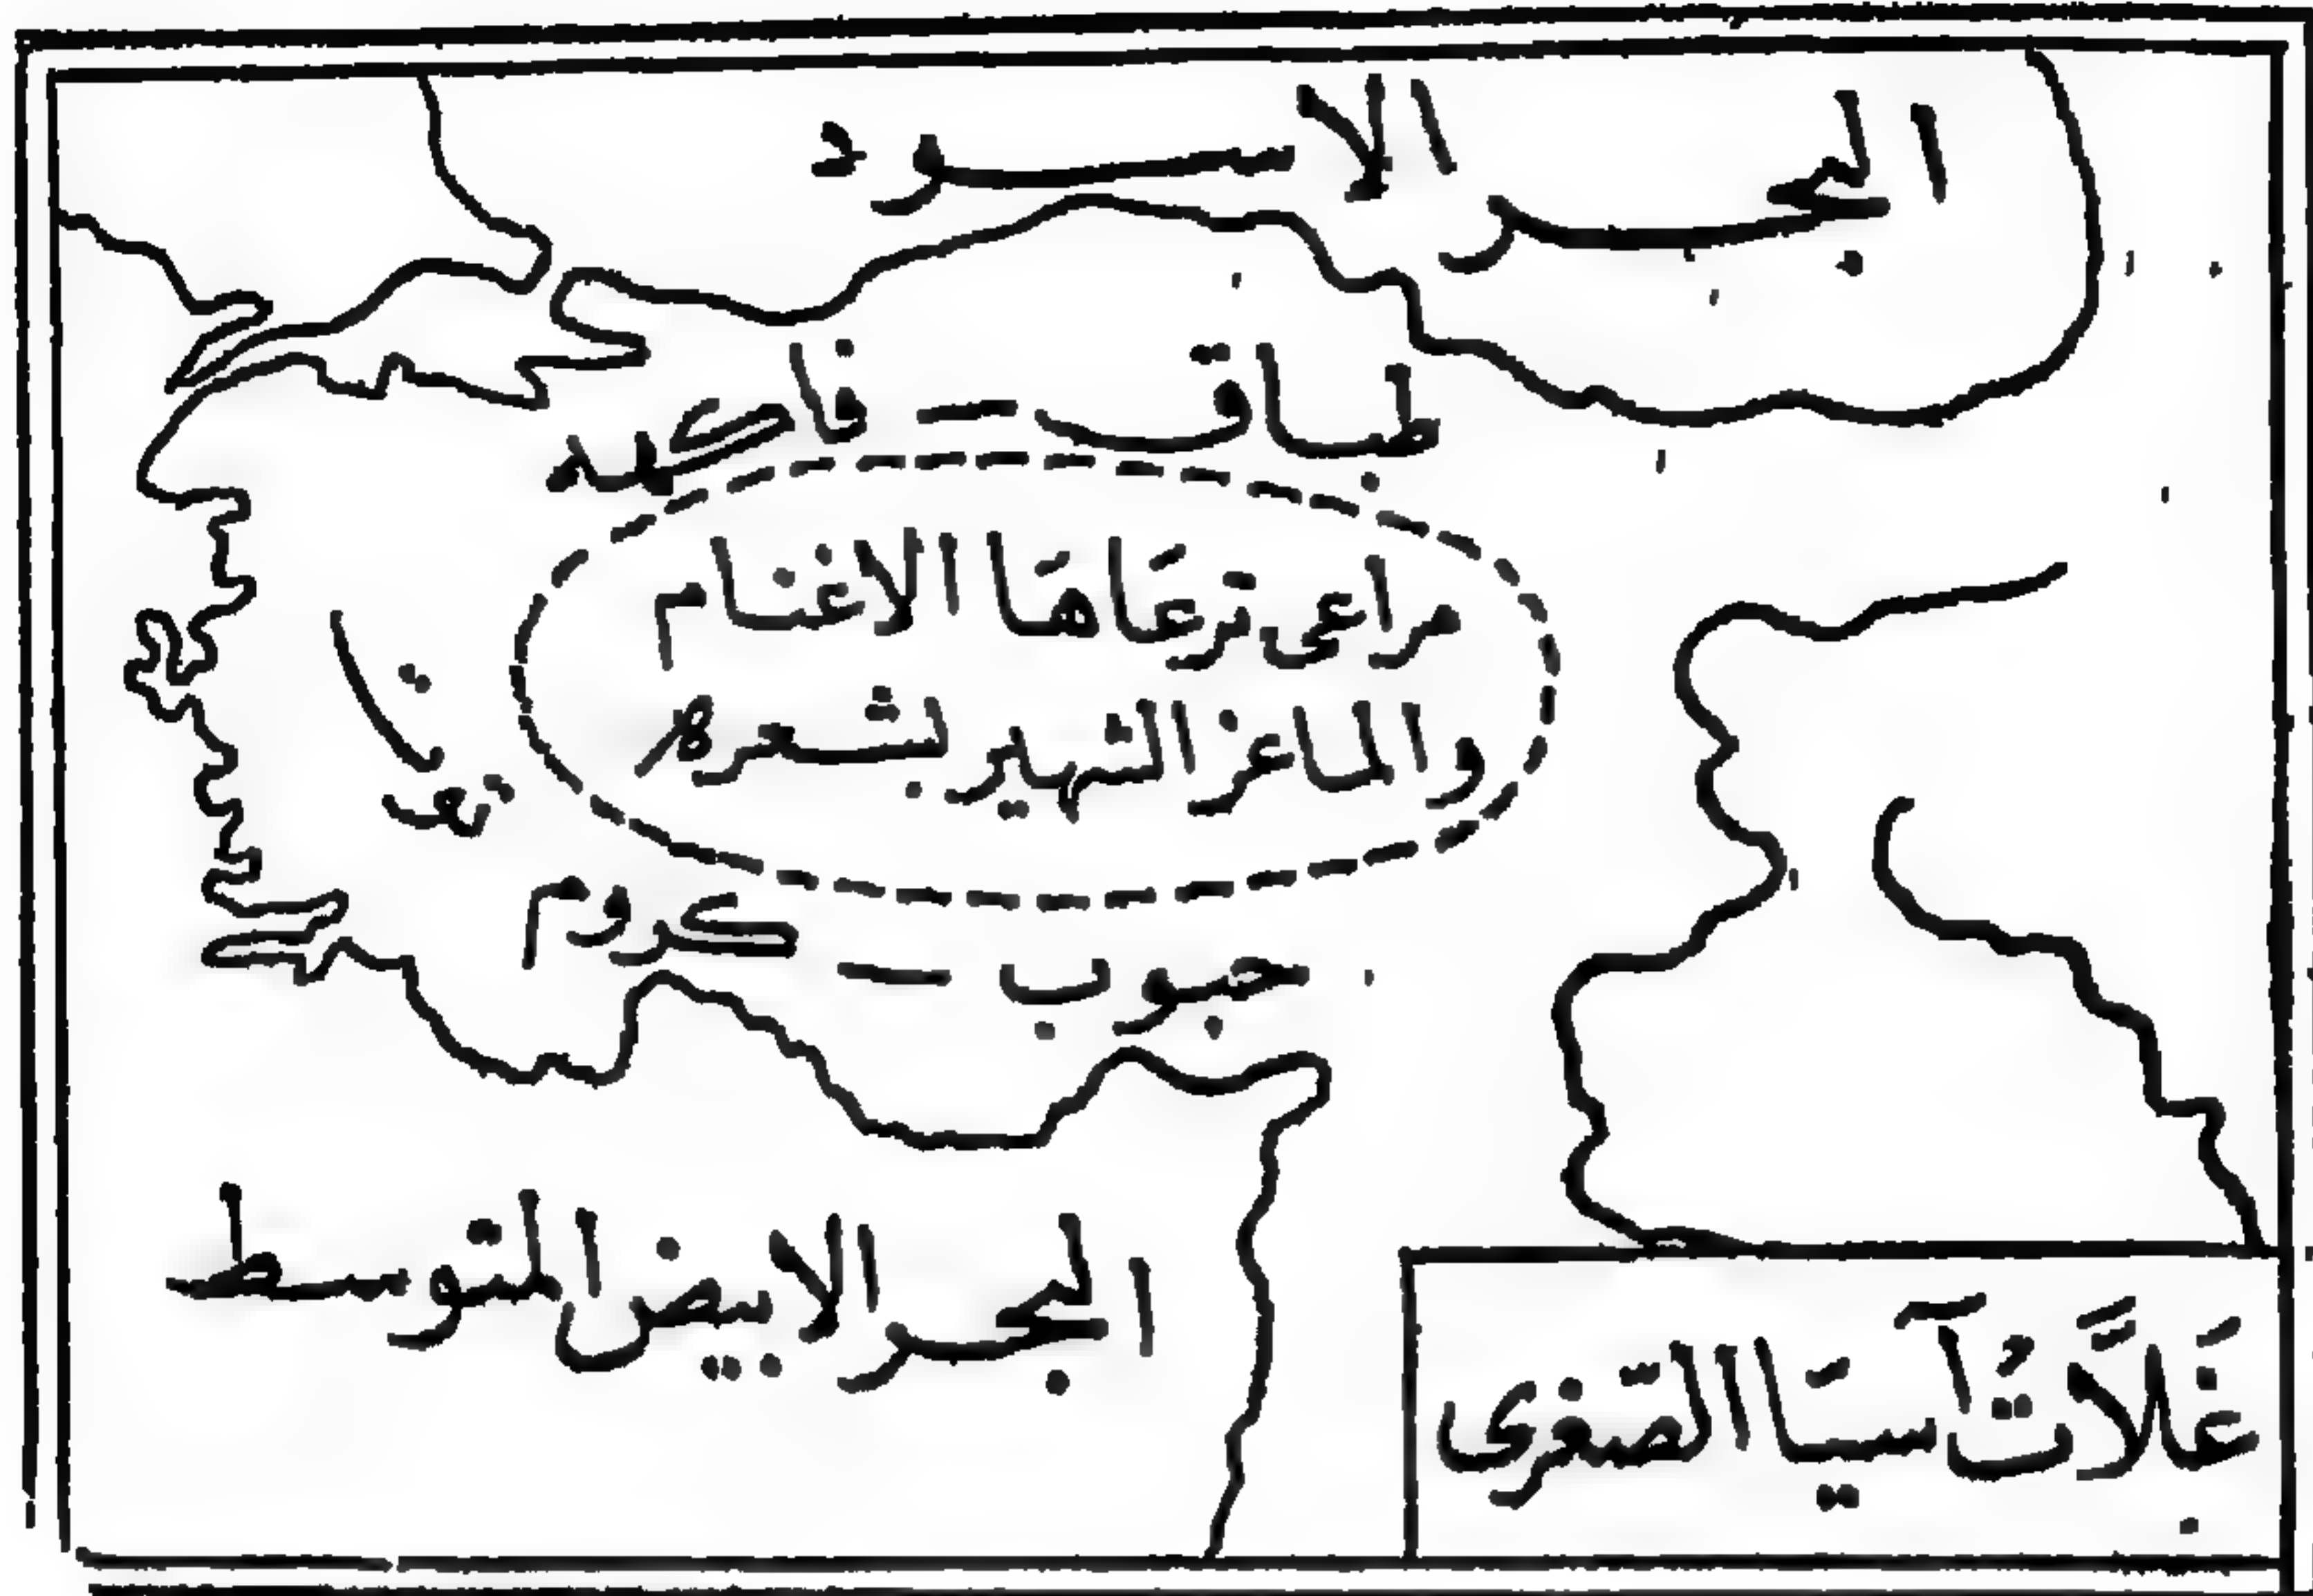 البحر الاسود
طباق — فاكهه
مراعى ترعَاهَا الاغنام
والماعز الشهير بشعره
تين
حبوب — كروم
البحر الابيض المتوسط
غَلاَّتُ آسيَا الصّغرى